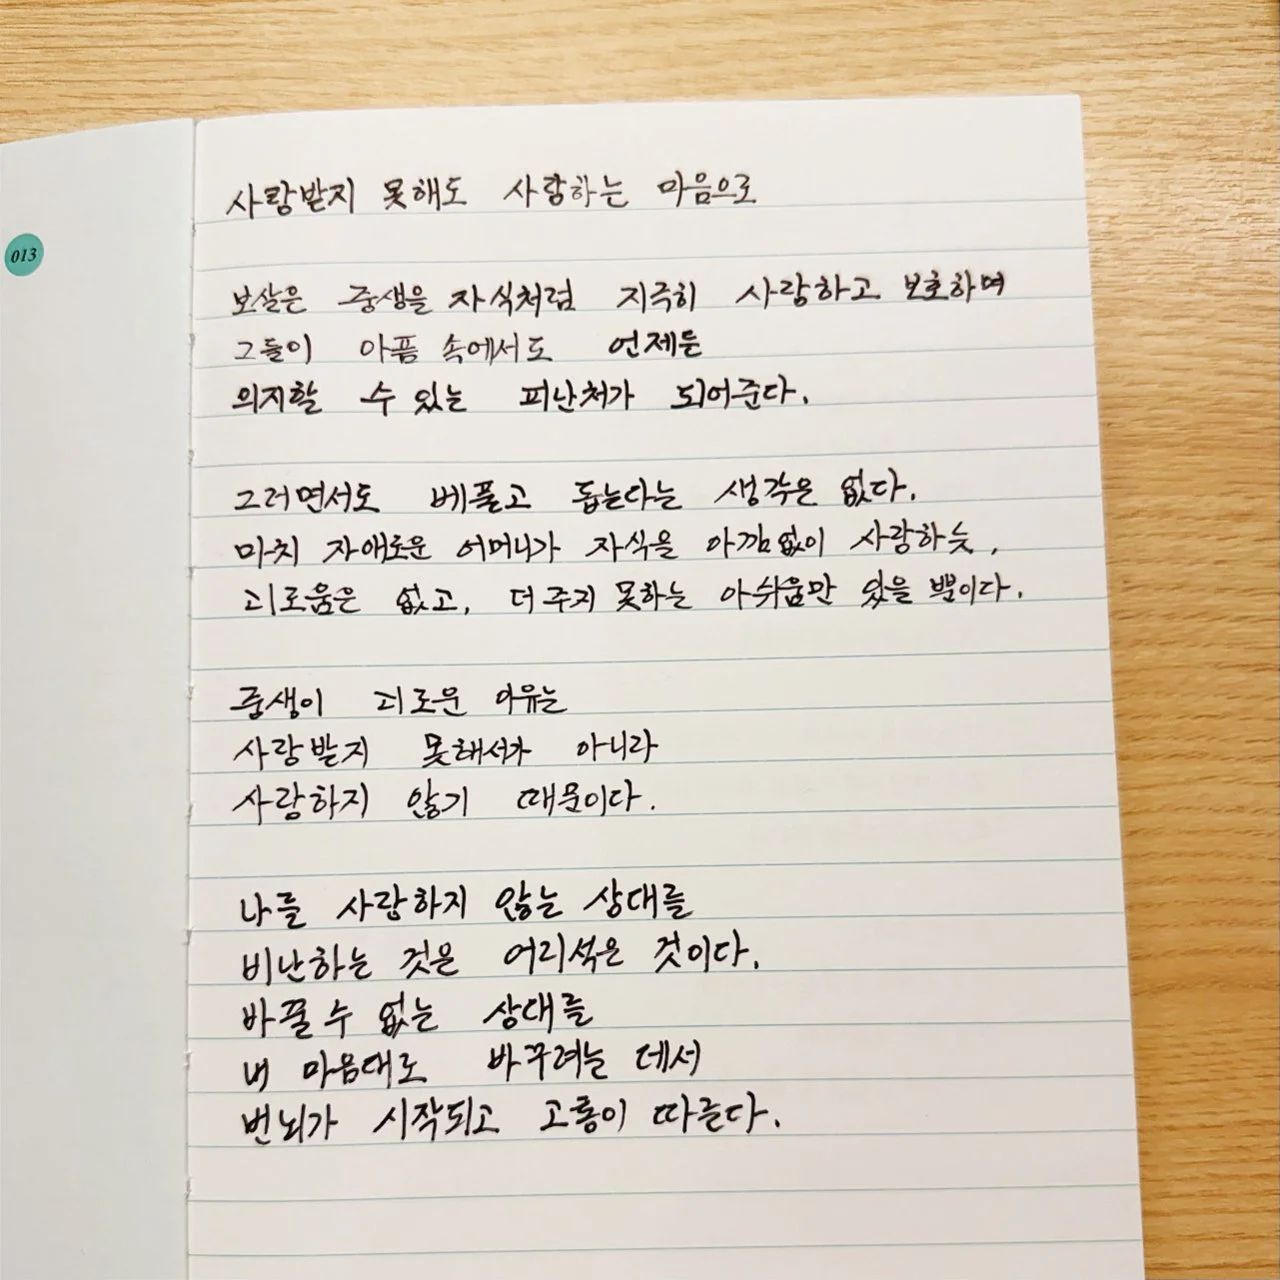 013
사랑받지 못해도 사랑하는 마음으로
보살은 중생을 자식처럼 지극히 사랑하고 보호하며
그들이 아픔 속에서도 언제든
의지할 수 있는 피난처가 되어준다.
그러면서도 베풀고 돕는다는 생각은 없다.
마치 자애로운 어머니가 자식을 아낌없이 사랑하듯,
괴로움은 없고, 더 주지 못하는 아쉬움만 있을 뿐이다.
중생이 괴로운 이유는
사랑받지 못해서가 아니라
사랑하지 않기 때문이다.
나를 사랑하지 않는 상대를
비난하는 것은 어리석은 것이다.
바꿀 수 없는 상대를
내 마음대로 바꾸려는 데서
번뇌가 시작되고 고통이 따른다.